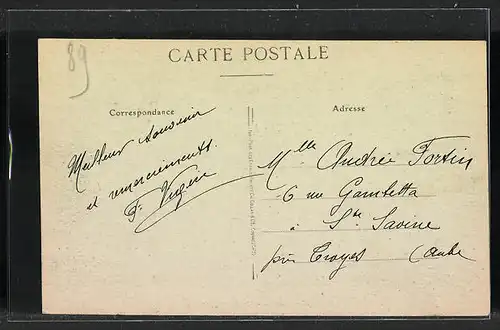 89
CARTE POSTALE
Correspondance
Adresse
Meilleur souvenir
et remerciements.
F.
Mlle Andrée Fortin
6 rue Gambetta
à Ste Savine
près Troyes (Aube